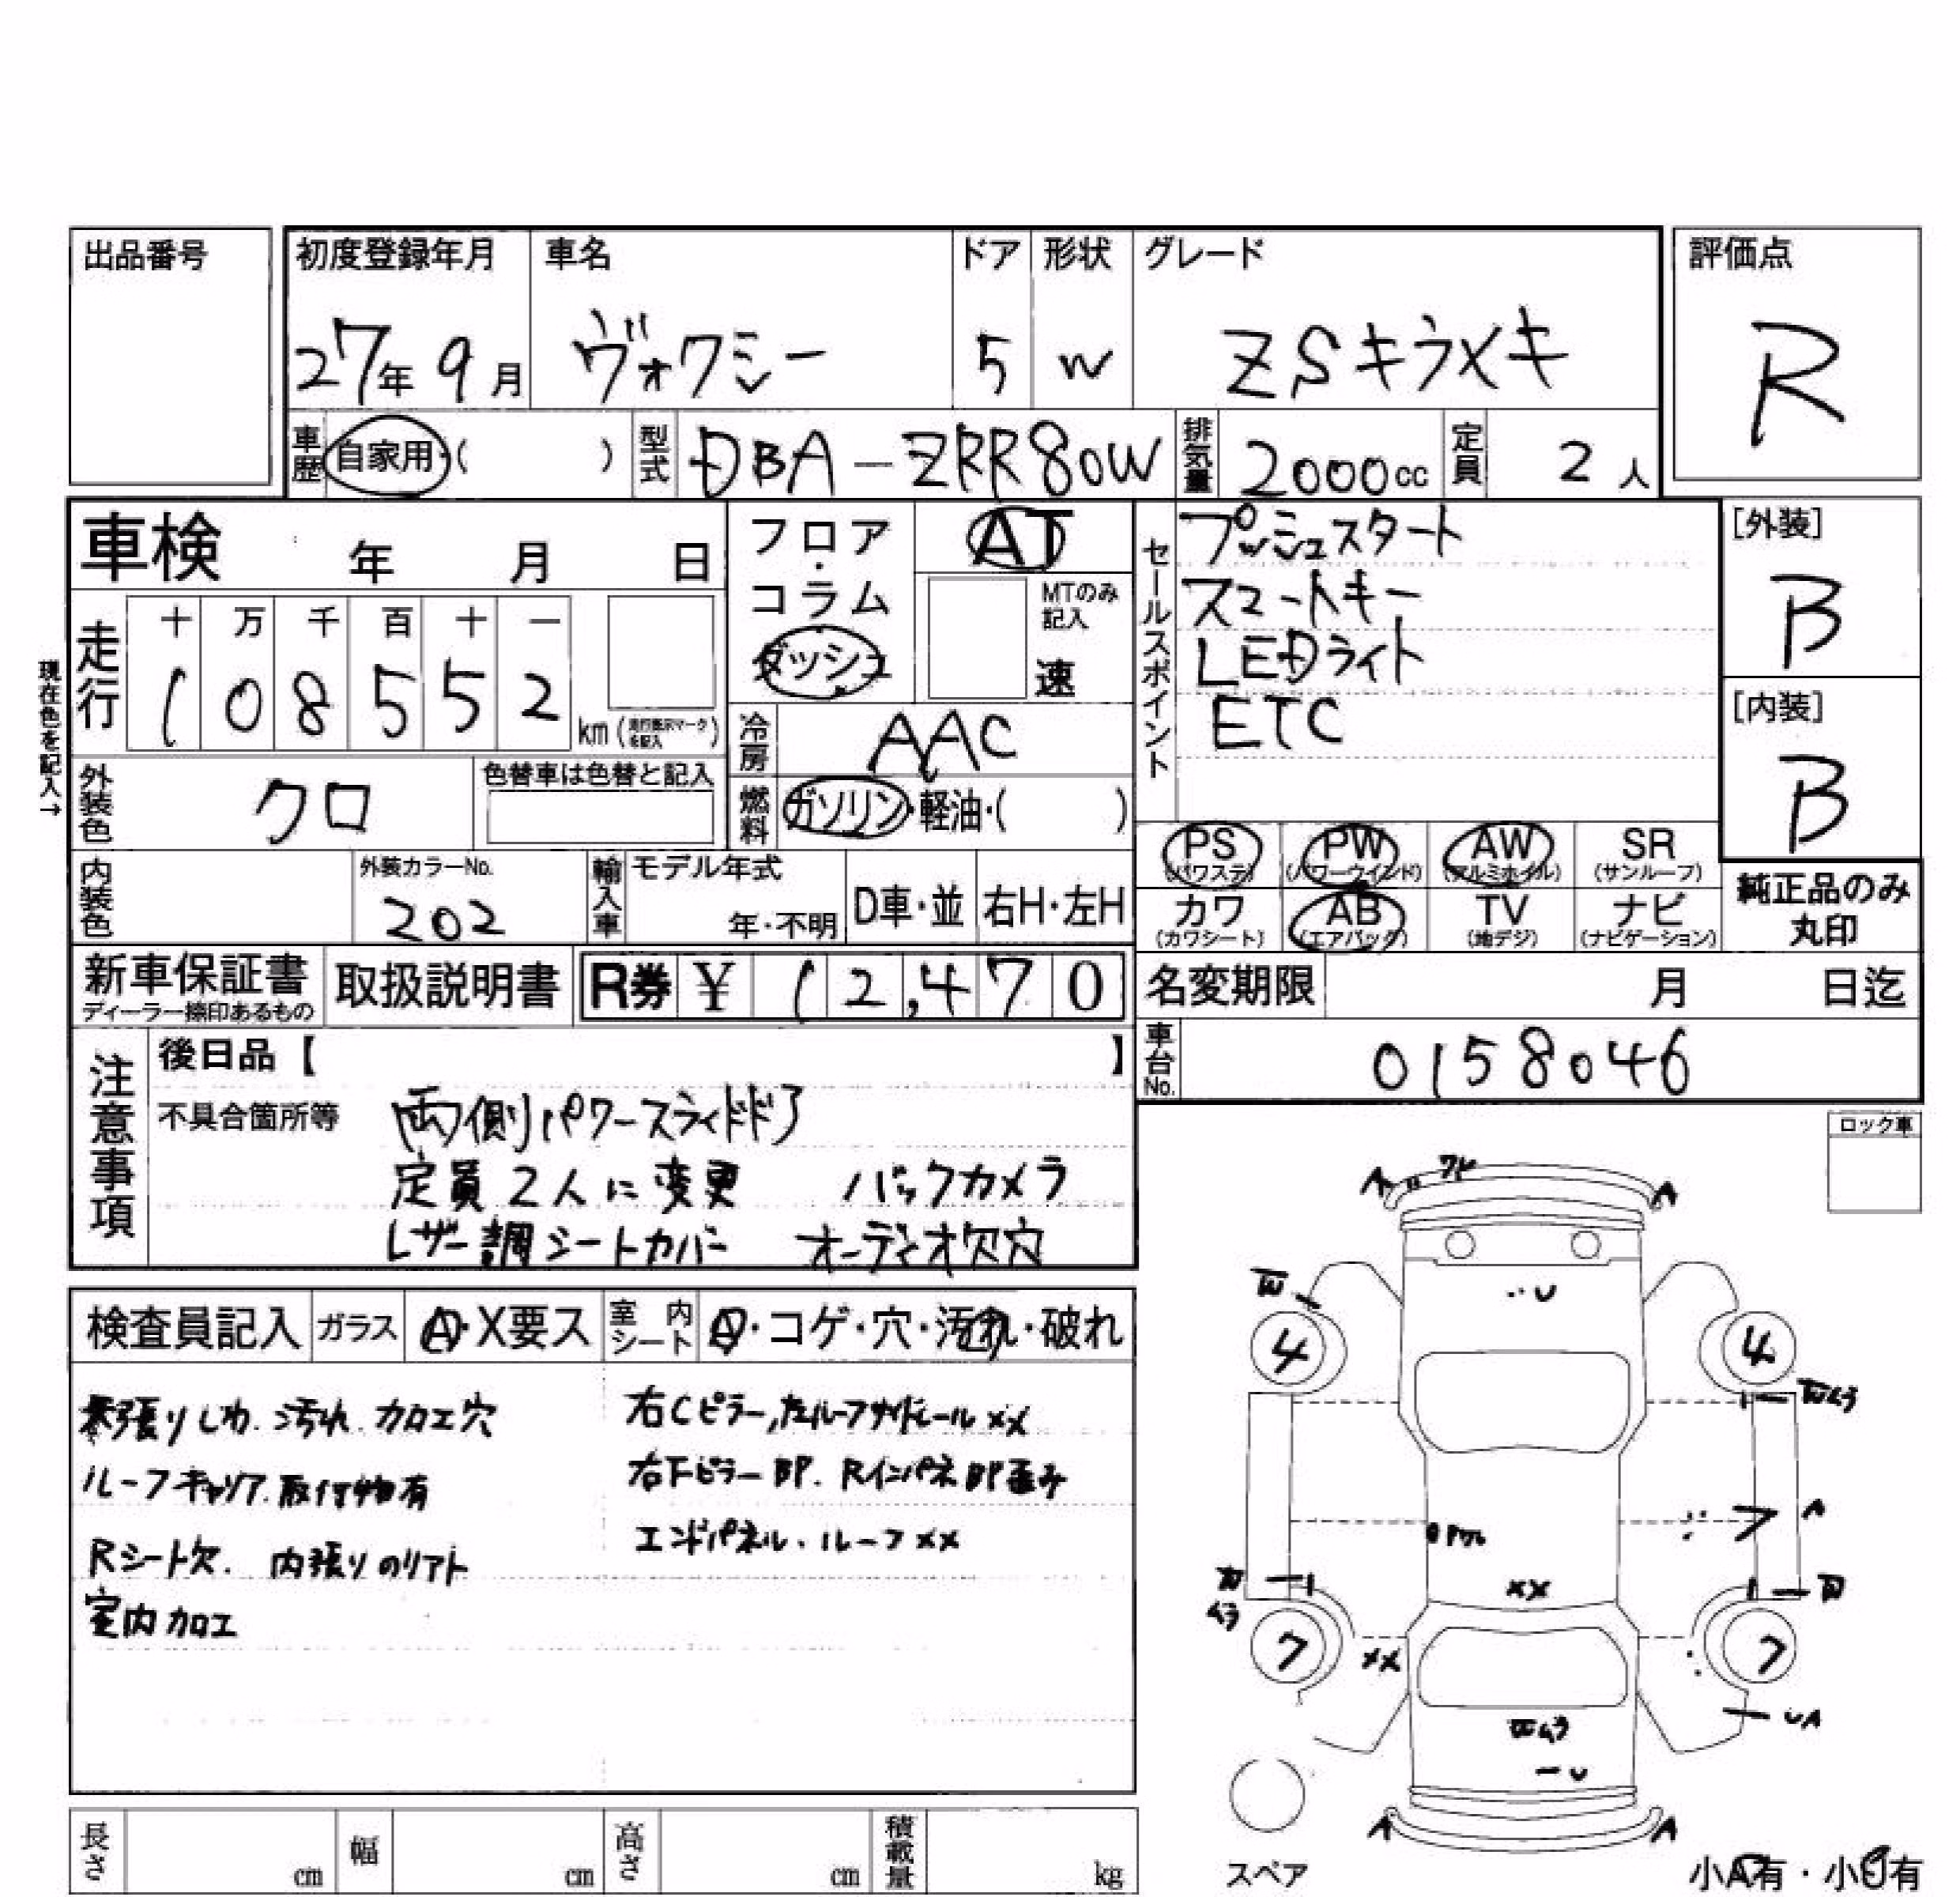 出品番号
初度登録年月 車名 ドア 形状 グレード 評価点
27年 9月 ヴォクシー 5 W ZSキラメキ R
車歴 自家用・( ) 型式 DBA-ZRR80W 排気量 2000cc 定員 2人
車検 年 月 日
フロア・コラム ダッシュ
AT
MTのみ記入 速
セールスポイント
プッシュスタート
スマートキー
LEDライト
ETC
[外装] B
[内装] B
現在色を記入→
走行 十 万 千 百 十 一
1 0 8 5 5 2 km
冷房 AAC
燃料 ガソリン・軽油・( )
外装色 クロ 色替車は色替と記入
PS (パワステ) PW (パワーウインド) AW (アルミホイル) SR (サンルーフ)
カワ (カワシート) AB (エアバック) TV (地デジ) ナビ (ナビゲーション)
純正品のみ丸印
内装色 外装カラーNo. 202 輸入車 モデル年式 年・不明 D車・並 右H・左H
新車保証書 ディーラー捺印あるもの 取扱説明書 R券 ¥ 12,470
名変期限 月 日迄
車台No. 0158046
注意事項 後日品【 】
不具合箇所等 両側パワースライドドア
定員2人に変更 バックカメラ
レザー調シートカバー オーディオ欠穴
検査員記入 ガラス A・X要ス 室内シート A・コゲ・穴・汚れ・破れ
張りしわ.汚れ.カロエ穴
ルーフキャリア.取付物有
Rシート欠. 内張りのリアト
室内カロエ
右Cピラー,左ルーフサイドレールXX
右Fピラー BP. Rインパネ BP歪み
エンドパネル.ルーフXX
ロック車
A A
U
4 4
7 A
XX
XX
7 7
UA
U
A A
スペア
小A有・小U有
長さ cm 幅 cm 高さ cm 積載量 kg